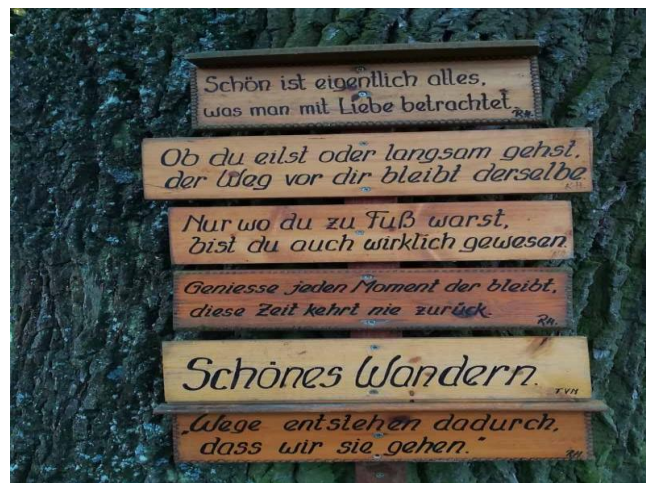 Schön ist eigentlich alles,
was man mit Liebe betrachtet.
R.H.
Ob du eilst oder langsam gehst,
der Weg vor dir bleibt derselbe
K.H.
Nur wo du zu Fuß warst,
bist du auch wirklich gewesen.
Geniesse jeden Moment der bleibt,
diese Zeit kehrt nie zurück.
R.H.
Schönes Wandern.
TVH
„Wege entstehen dadurch,
dass wir sie gehen.“
R.H.